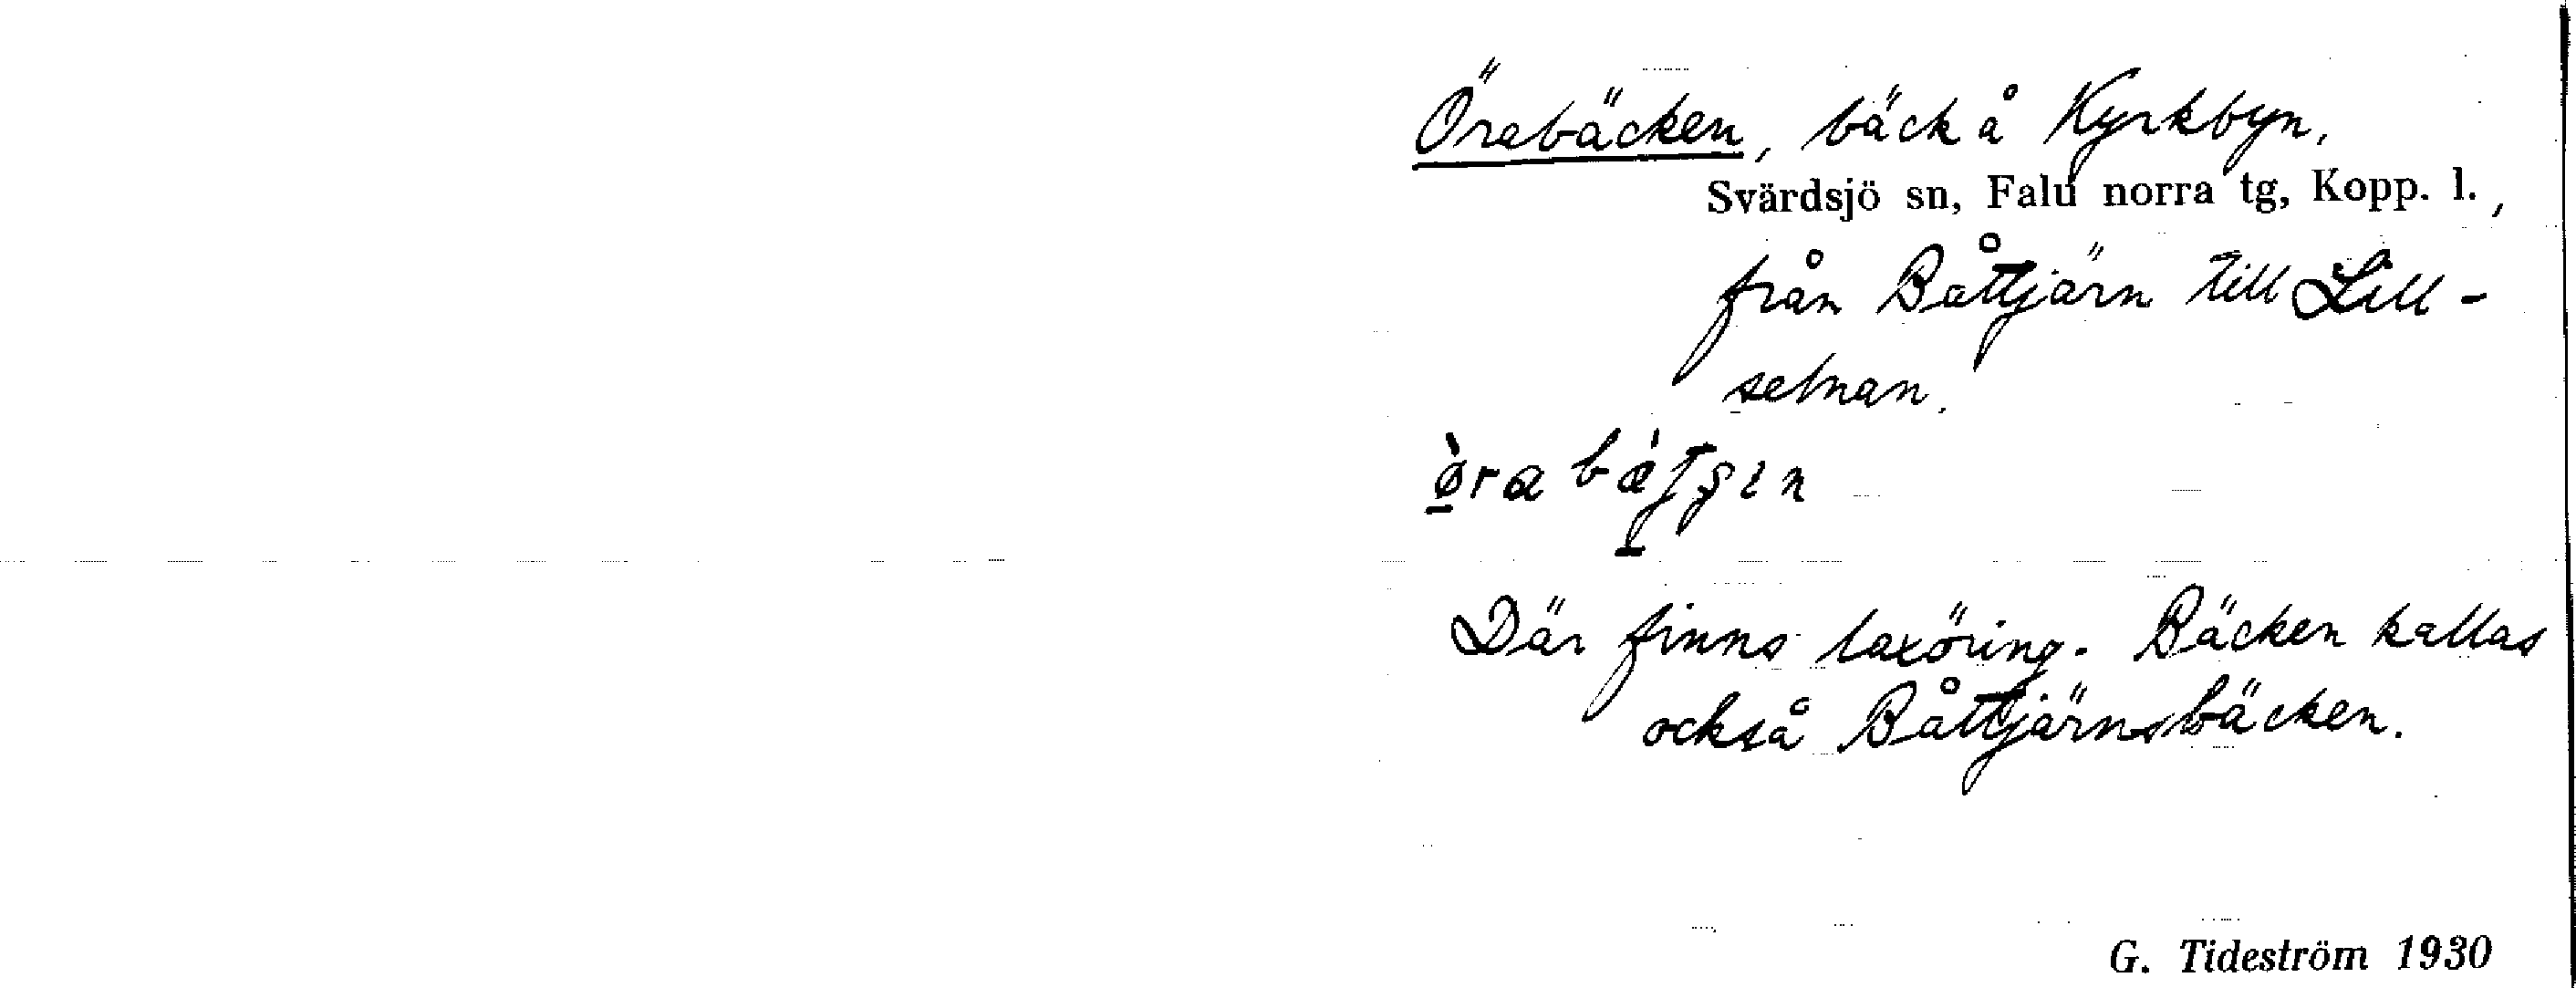 Örebäcken, bäck å Kyrkbyn,
Svärdsjö sn, Falu norra tg, Kopp. l.,
från Båttjärn till Lill-
selnan.
Där finns laxöring. Bäcken kallas
också Båttjärnsbäcken.
G. Tideström 1930